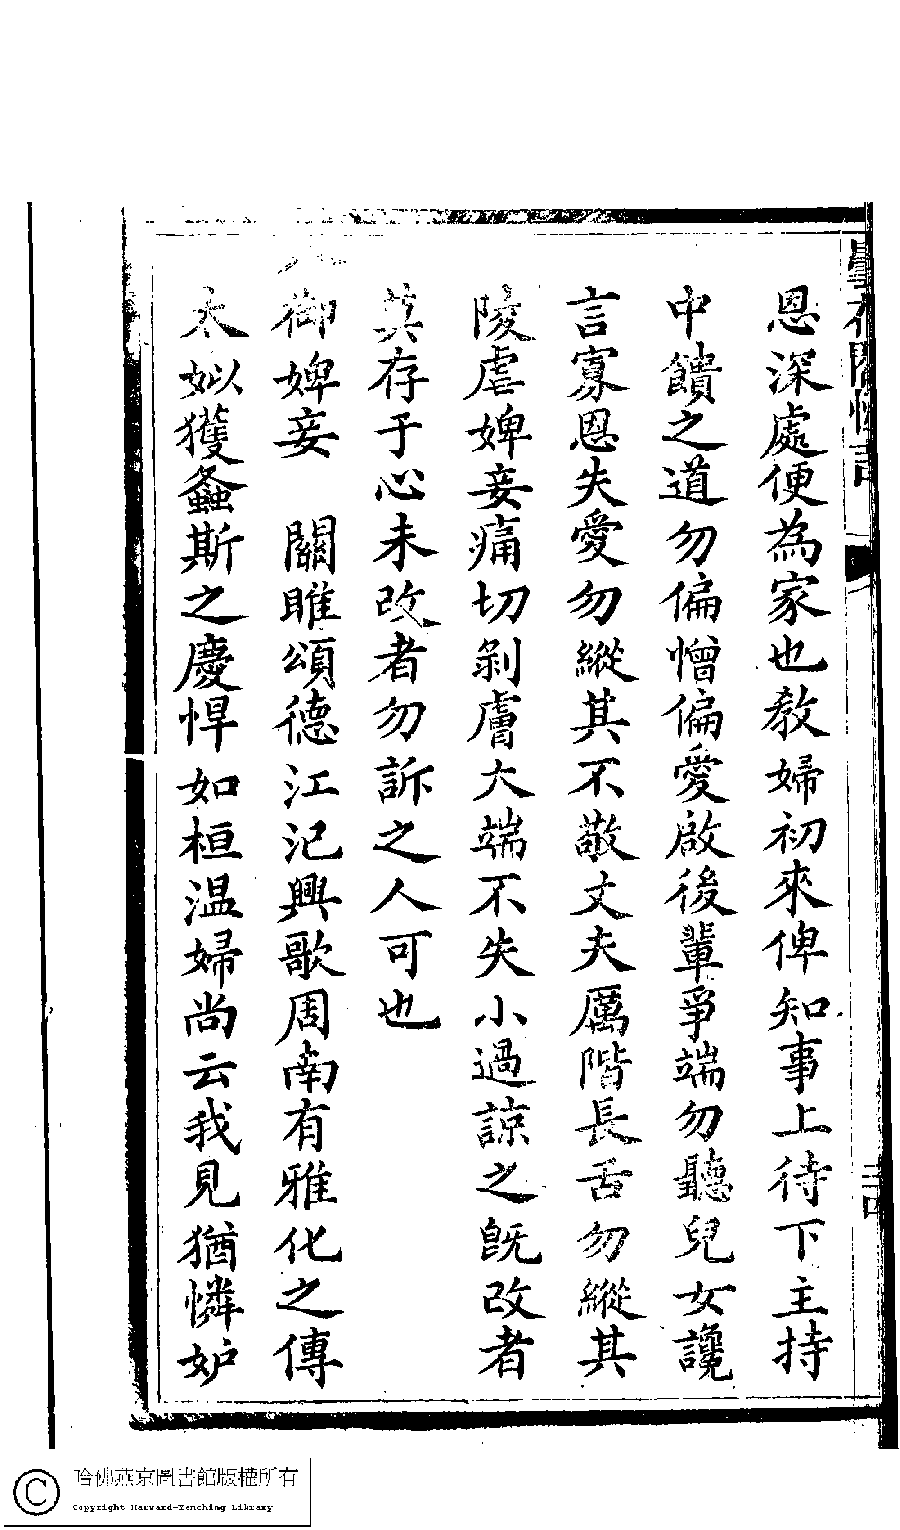 恩深處便為家也教婦初來俾知事上待下主持
中饋之道勿偏憎偏愛啟後輩爭端勿聽兒女讒
言寡恩失愛勿縱其不敬丈夫厲階長舌勿縱其
陵虐婢妾痛切剝膚大端不失小過諒之旣改者
莫存于心未改者勿訴之人可也
御婢妾　關雎頌德江汜興歌周南有雅化之傳
太姒獲螽斯之慶悍如桓温婦尚云我見猶憐妒
哈佛燕京圖書館版權所有
Copyright Harvard-Yenching Library